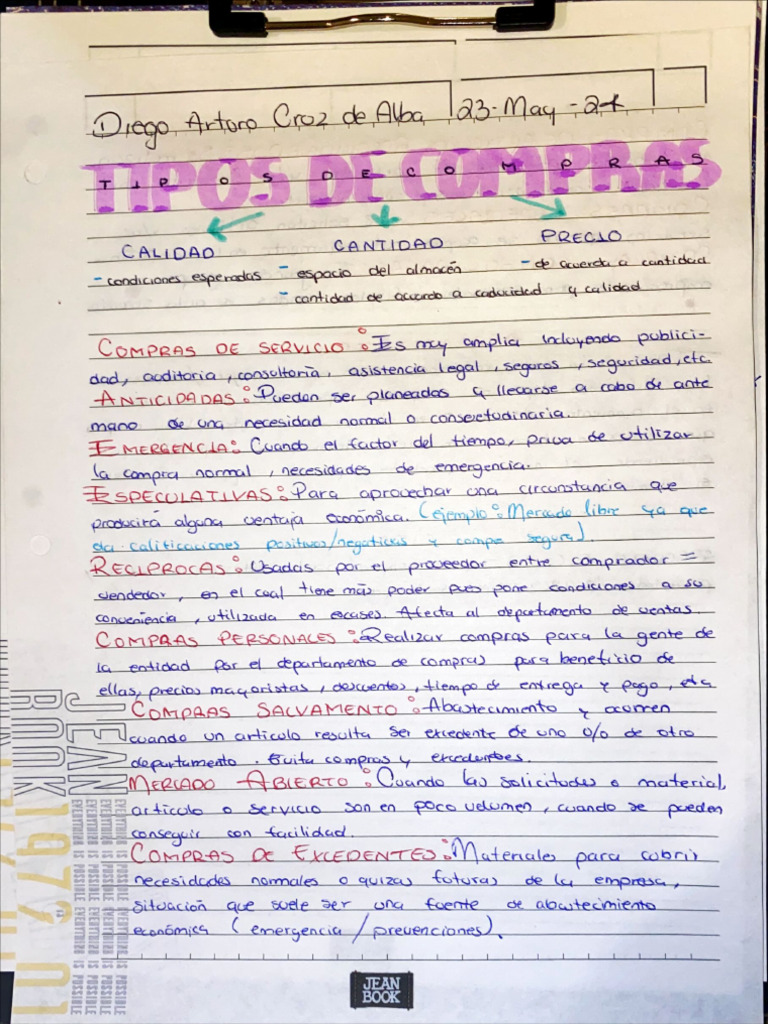 Diego Arturo Cruz de Alba 23-May-24
TIPOS DE COMPRAS
CALIDAD CANTIDAD PRECIO
- condiciones esperadas - espacio del almacén - de acuerdo a cantidad
- cantidad de acuerdo a caducidad y calidad
COMPRAS DE SERVICIO: Es muy amplia incluyendo publici-
dad, auditoria, consultoría, asistencia legal, seguros, seguridad, etc.
ANTICIPADAS: Pueden ser planeadas y llevarse a cabo de ante
mano de una necesidad normal o consuetudinaria.
EMERGENCIA: Cuando el factor del tiempo, priva de utilizar
la compra normal, necesidades de emergencia.
ESPECULATIVAS: Para aprovechar una circunstancia que
producirá alguna ventaja económica. (ejemplo: Mercado libre ya que
da calificaciones positivas/negativas y compra segura).
RECIPROCAS: Usadas por el proveedor entre comprador =
vendedor, en el cual tiene más poder pues pone condiciones a su
conveniencia, utilizada en escases. Afecta al departamento de ventas.
COMPRAS PERSONALES: Realizar compras para la gente de
la entidad por el departamento de compras para beneficio de
ellas, precios mayoristas, descuentos, tiempo de entrega y pago, etc
COMPRAS SALVAMENTO: Abastecimiento y ocurren
cuando un articulo resulta ser excedente de uno o/o de otro
departamento. Evita compras y excedentes.
MERCADO ABIERTO: Cuando las solicitudes o material,
articulo o servicio son en poco volumen, cuando se pueden
conseguir con facilidad.
COMPRAS DE EXCEDENTES: Materiales para cubrir
necesidades normales o quizas futuras de la empresa,
situación que suele ser una fuente de abastecimiento
económica (emergencia / prevenciones).
JEAN BOOK
1972.01
EVERYTHING IS POSSIBLE
JEAN
BOOK